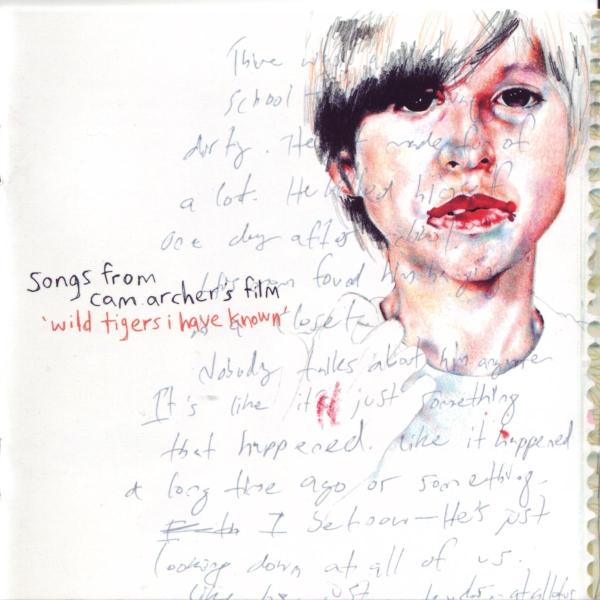 There
school
dirty. He made fun of
a lot. He killed himself
one day after school.
found him hanging
songs from
cam archer's film
'wild tigers i have known'
closet
Nobody talks about him anymore
It's like it just something
that happened. like it happened
a long time ago or something.
I
He's just
looking down at all of us.
Like he just